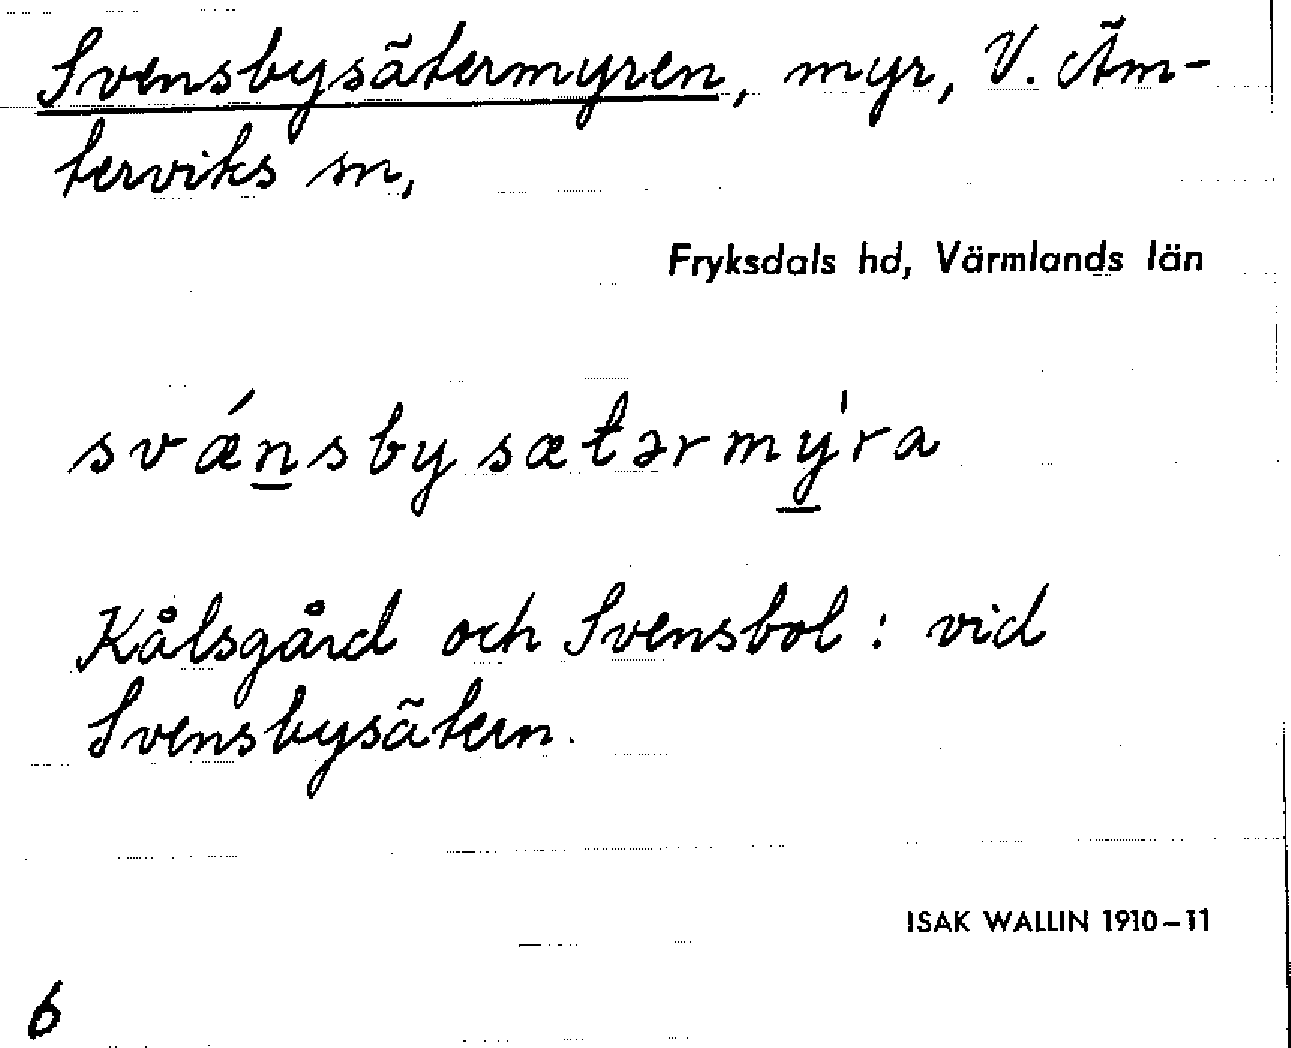 Svensbysätermyren, myr, V. Äm-
terviks sn,
Fryksdals hd, Värmlands län
svǽn̲sbysætərmy̲̍ra
Kålsgård och Svensbol: vid
Svensbysätern.
ISAK WALLIN 1910–11
6